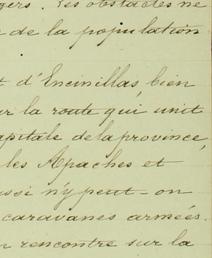 gers. Les obstacles ne
de la population
t d'Encinillas, bien
ur la route qui unit
apitale de la province,
les Apaches et
ussi n'y peut-on
caravanes armées.
n rencontre sur la